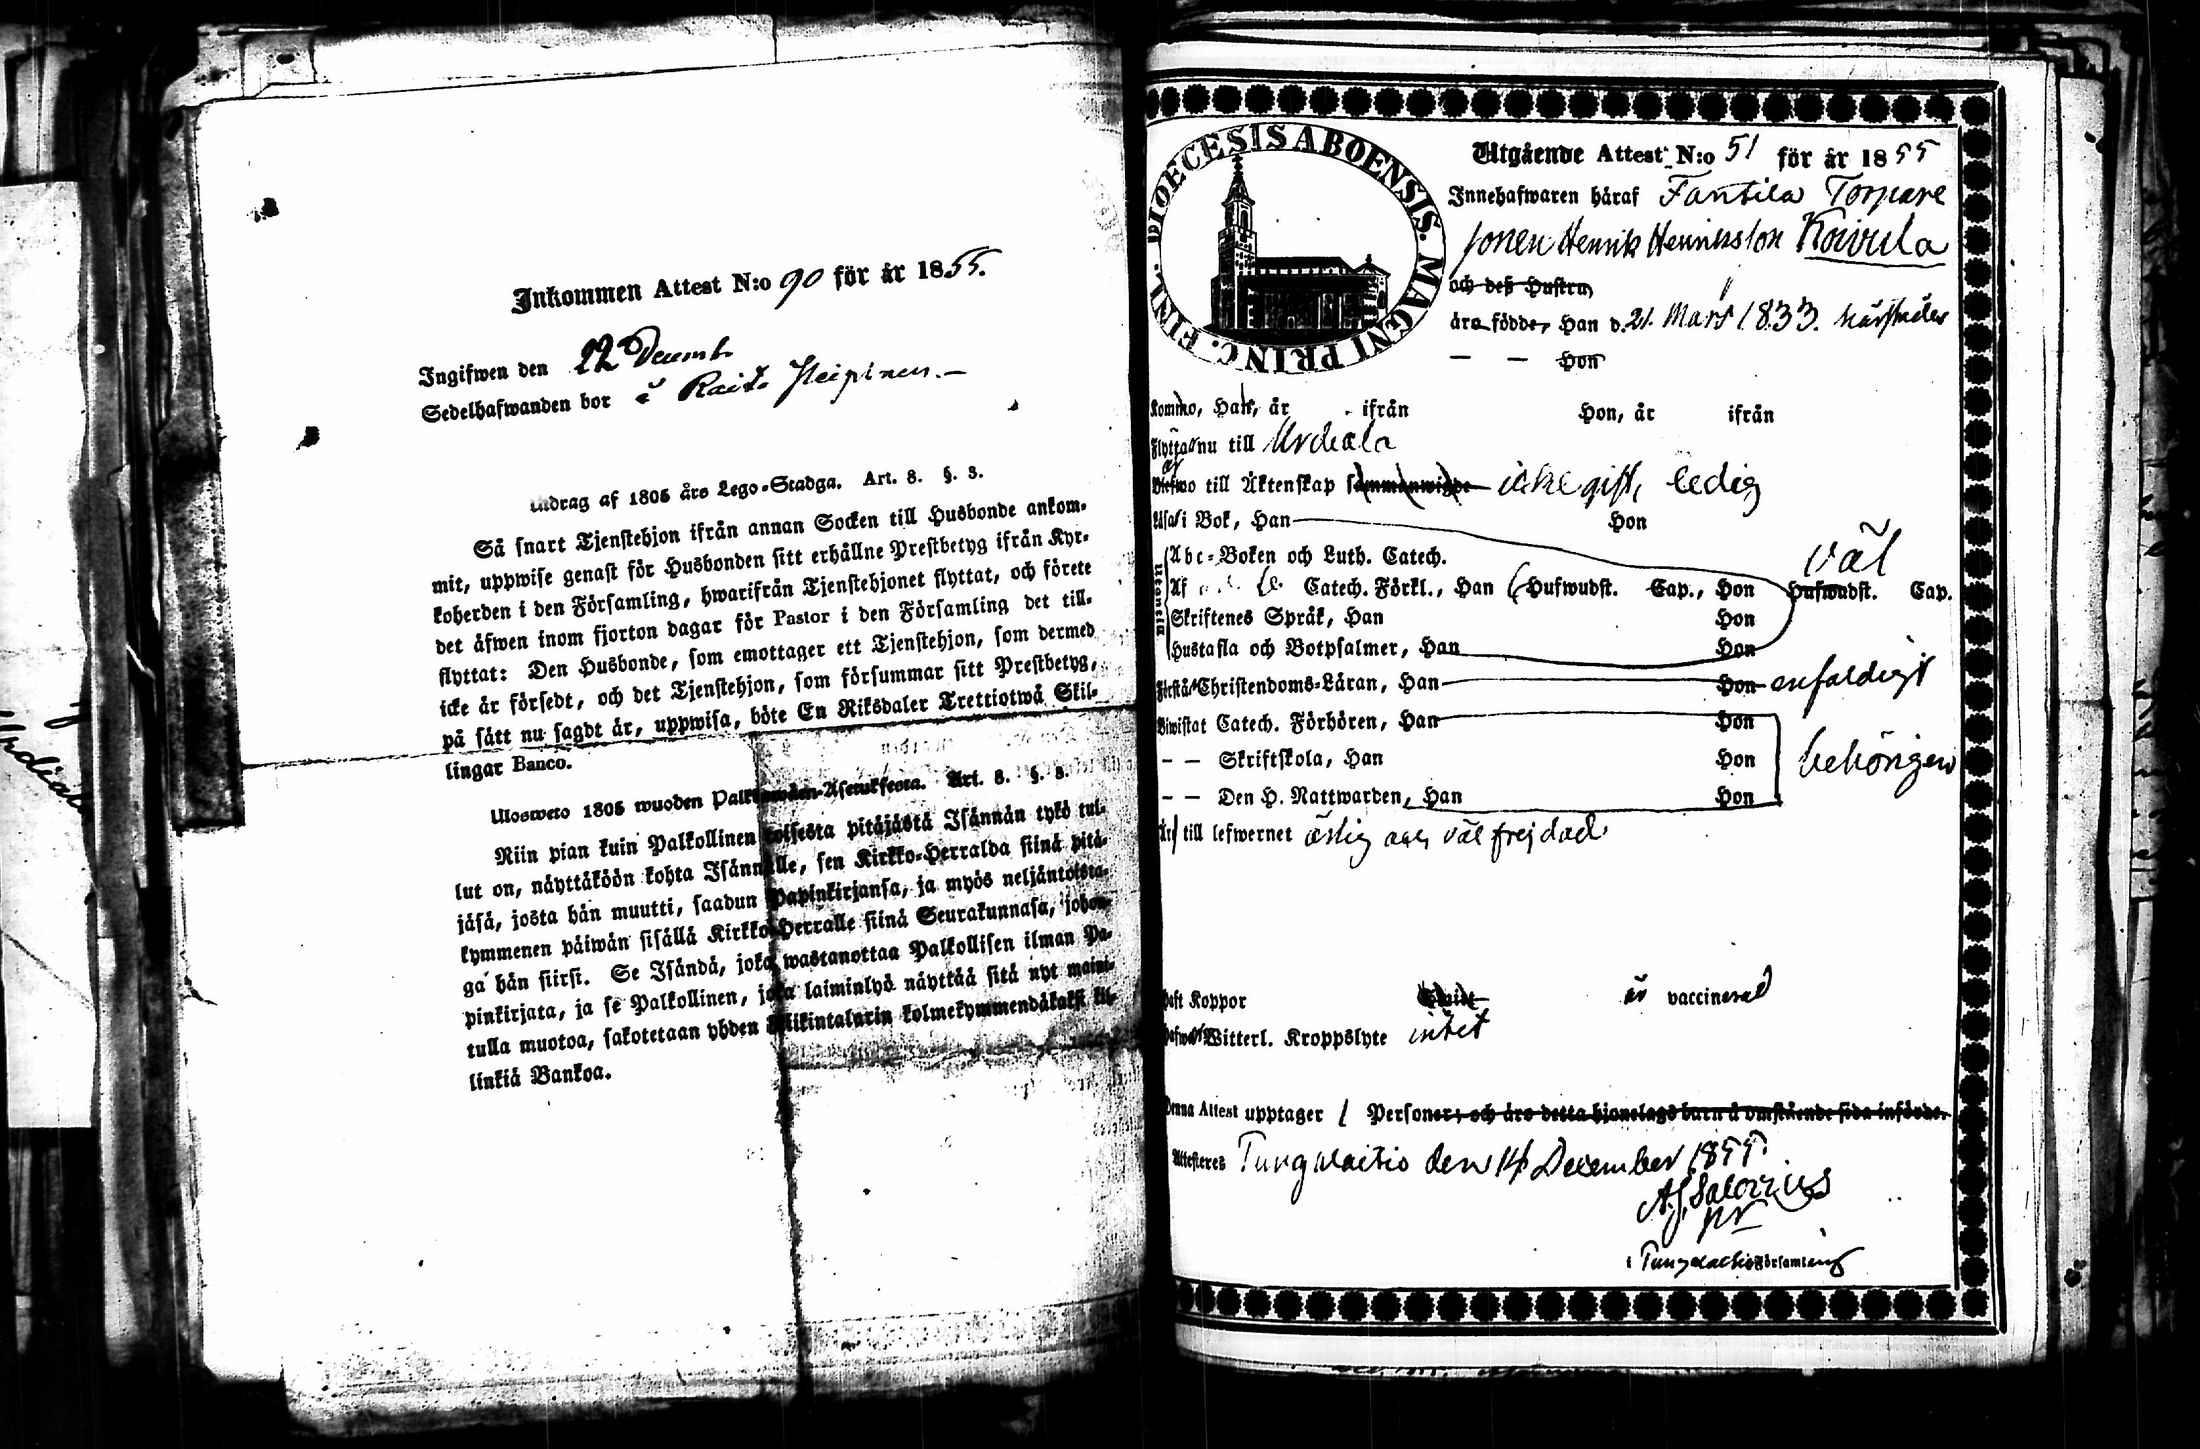 Inkommen Attest N:o 90 för år 1855.
Ingifwen den 22 Decemb.
Sedelhafwanden bor i Raito
Utdrag af 1805 års Lego-Stadga. Art. 8. §. 3.
Så snart Tjenstehjon ifrån annan Socken till Husbonde ankom-
mit, uppwise genast för Husbonden sitt erhållne Prestbetyg ifrån Kyr-
koherden i den Församling, hwarifrån Tjenstehjonet flyttat, och förete
det äfwen inom fjorton dagar för Pastor i den Församling det till-
flyttat: Den Husbonde, som emottager ett Tjenstehjon, som dermed
icke är försedt, och det Tjenstehjon, som försummar sitt Prestbetyg,
på sätt nu sagdt är, uppwisa, böte En Riksdaler Trettiotwå Skil-
lingar Banco.
Ulosweto 1805 wuoden Palkkawäen-Asetuksesta. Art. 8. §. 3.
Niin pian kuin Palkollinen toisesta pitäjästä Isännän tykö tul-
lut on, näyttäköön kohta Isännälle, sen Kirkko-Herralda siinä pitä-
jäsä, josta hän muutti, saadun Papinkirjansa, ja myös neljäntoista-
kymmenen päiwän sisällä Kirkko-Herralle siinä Seurakunnasa, johon-
ga hän siirsi. Se Isändä, joka wastanottaa Palkollisen ilman Pa-
pinkirjata, ja se Palkollinen, joka laiminlyö näyttää sitä nyt maini-
tulla muotoa, sakotetaan yhden Riikintalarin kolmekymmendäkaksi kil-
linkiä Bankoa.
DIOECESIS ABOENSIS. MAGNI PRINC. FINL.
Utgående Attest N:o 51 för år 1855
Innehafwaren häraf Fantila Torpare
sonen Henrik Henriksson Koivula
och deß Hustru
äro födde, Han d. 21. Mars 1833. härstädes
— — Hon
Kommo, Han, år ifrån Hon, år ifrån
Flyttar nu till Urdiala
är
Blefwo till Äktenskap sammanwigde icke gift, ledig
Läsa i Bok, Han Hon
Utantill
Abc-Boken och Luth. Catech. väl
Af Catech. Förkl., Han Hufwudst. Cap., Hon Hufwudst. Cap.
Skriftenes Språk, Han Hon
Hustafla och Botpsalmer, Han Hon
Förstår Christendoms-Läran, Han Hon enfaldigt
Biwistat Catech. Förhören, Han Hon
— — Skriftskola, Han Hon behörigen
— — Den H. Nattwarden, Han Hon
Är till lefwernet ärlig och väl frejdad
Haft Koppor är vaccinerad
Hafwer Witterl. Kroppslyte intet
Denna Attest upptager 1 Personer, och äro detta hjonelags barn å omstående sida införde.
Attesteras Tungelaitio den 14 December 1855.
A.J. Salovius
pr
i Tungelaitio Församling
Urdiala